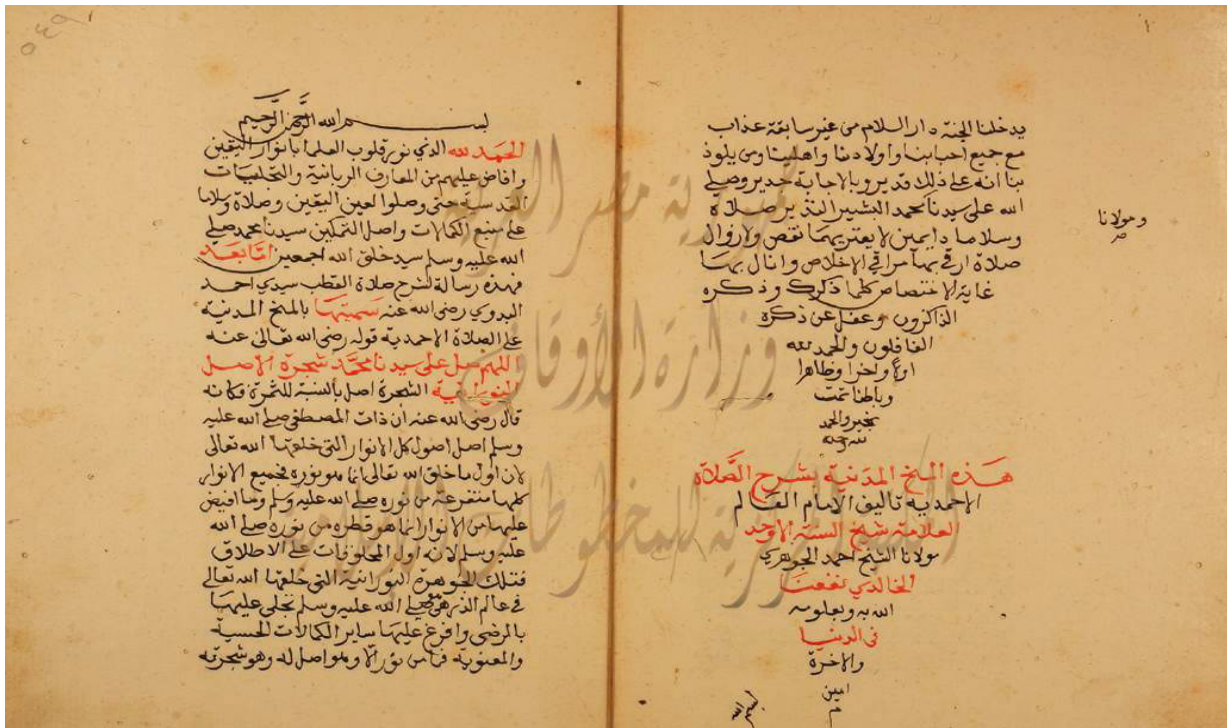 يدخلنا الجنة دار السلام من غير سابقة عذاب
مع جميع احبابنا واولادنا واهلينا ومن يلوذ
بنا انه على ذلك قدير وبالاجابة جدير وصلى
الله على سيدنا محمد البشير النذير صلاة
وسلاما دايمين لا يعتريهما نقص ولا زوال
صلاة ارقى بها مراقي الاخلاص وانال بها
غاية الاختصاص كلما ذكرك وذكره
الذاكرون وغفل عن ذكره
الغافلون والحمد لله
اولا واخرا وظاهرا
وباطنا تمت
بخير والحمد
لله
ومولانا
هذه المنح المدنية بشرح الصلاة
الاحمدية تاليف الامام العالم
العلامة شيخ السنة الاوحد
مولانا الشيخ احمد الجوهري
الخالدي نفعنا
الله به وبعلومه
في الدنيا
والاخرة
امين
م
بسم الله
بسم الله الرحمن الرحيم
الحمد لله الذي نور قلوب العلما بانوار اليقين
وافاض عليهم من المعارف الربانية والتجليات
القدسية حتى وصلوا لعين اليقين وصلاة وسلاما
على منبع الكمالات واصل التمكين سيدنا محمد صلى
الله عليه وسلم سيد خلق الله اجمعين اما بعد
فهذه رسالة لشرح صلاة القطب سيدي احمد
البدوي رضى الله عنه سميتها بالمنح المدنية
على الصلاة الاحمدية قوله رضى الله تعالى عنه
اللهم صل على سيدنا محمد شجرة الاصل
النورانية الشجرة اصل بالنسبة للثمرة فكانه
قال رضى الله عنه ان ذات المصطفى صلى الله عليه
وسلم اصل اصول كل الانوار التي خلقها الله تعالى
لان اول ما خلق الله تعالى انما هو نوره فجميع الانوار
كلها متفرعة من نوره صلى الله عليه وسلم وما افيض
عليها من الانوار انما هو قطرة من نوره صلى الله
عليه وسلم لانه اول المخلوقات على الاطلاق
فتلك الجوهرة النورانية التي خلقها الله تعالى
في عالم الذر هو صلى الله عليه وسلم تجلى عليها
بالرضى وافرغ عليها ساير الكمالات الحسية
والمعنوية فما من نور الا وهو اصل له وهو شجرته
جمهورية مصر العربية
وزارة الأوقاف
المكتبة المركزية للمخطوطات الإسلامية